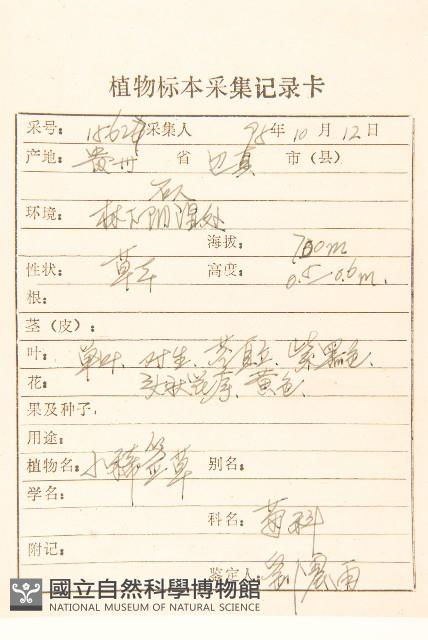 植物标本采集记录卡
采号: 采集人 95年10月12日
产地: 贵州 省 市(县)
石人
环境: 林下阴湿处
海拔 700m
性状: 草本 高度: 0.5—0.6m.
根:
茎(皮):
叶: 单叶、对生、茎直立、紫黑色、
花: 头状花序、黄色、
果及种子.
用途:
植物名: 小豨莶草 别名:
学名:
科名: 菊科
附记:
鉴定人:
國立自然科學博物館
NATIONAL MUSEUM OF NATURAL SCIENCE